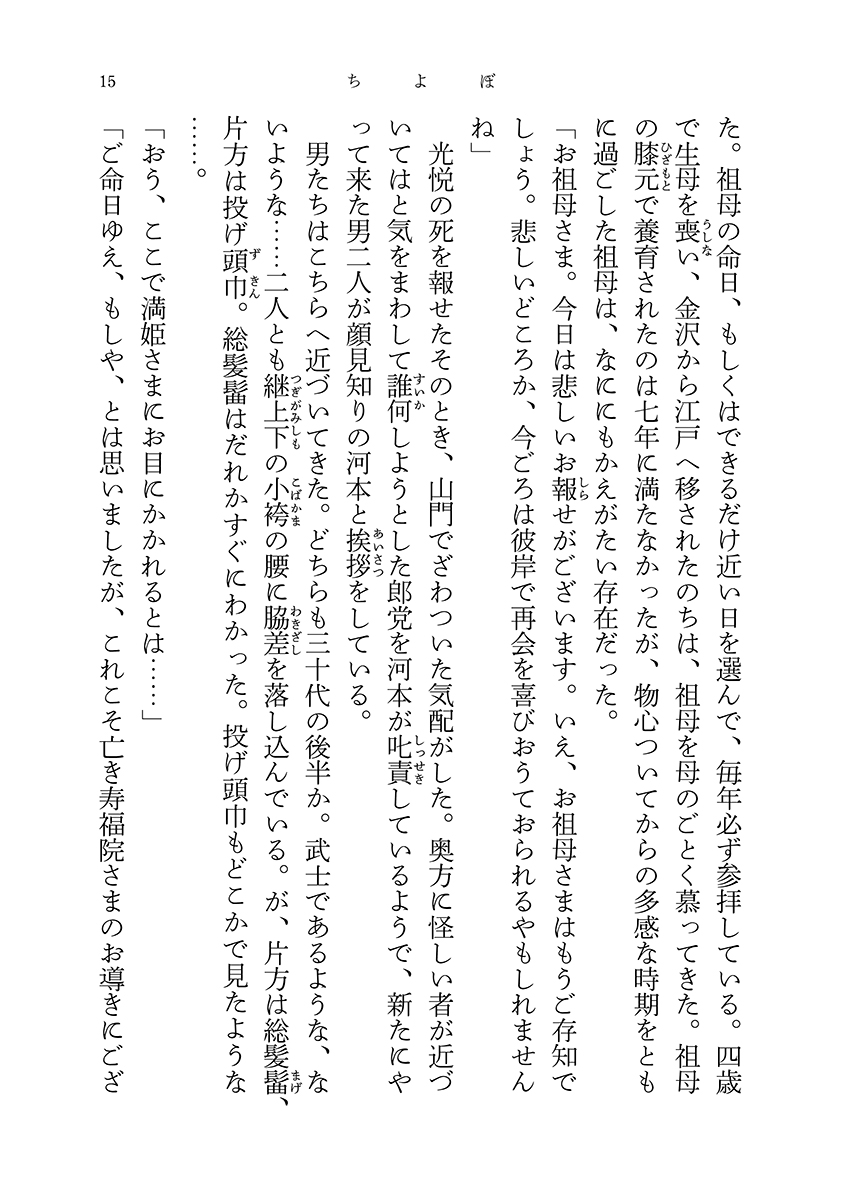 15
ちよぼ
た。祖母の命日、もしくはできるだけ近い日を選んで、毎年必ず参拝している。四歳
で生母を喪い、金沢から江戸へ移されたのちは、祖母を母のごとく慕ってきた。祖母
の膝元で養育されたのは七年に満たなかったが、物心ついてからの多感な時期をとも
に過ごした祖母は、なににもかえがたい存在だった。
「お祖母さま。今日は悲しいお報せがございます。いえ、お祖母さまはもうご存知で
しょう。悲しいどころか、今ごろは彼岸で再会を喜びおうておられるやもしれません
ね」
光悦の死を報せたそのとき、山門でざわついた気配がした。奥方に怪しい者が近づ
いてはと気をまわして誰何しようとした郎党を河本が叱責しているようで、新たにや
って来た男二人が顔見知りの河本と挨拶をしている。
男たちはこちらへ近づいてきた。どちらも三十代の後半か。武士であるような、な
いような……二人とも継上下の小袴の腰に脇差を落し込んでいる。が、片方は総髪髷、
片方は投げ頭巾。総髪髷はだれかすぐにわかった。投げ頭巾もどこかで見たような
……。
「おう、ここで満姫さまにお目にかかれるとは……」
「ご命日ゆえ、もしや、とは思いましたが、これこそ亡き寿福院さまのお導きにござ